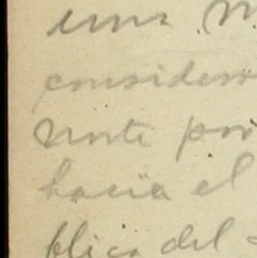 una M
consider
vante por
hacia el
blica del